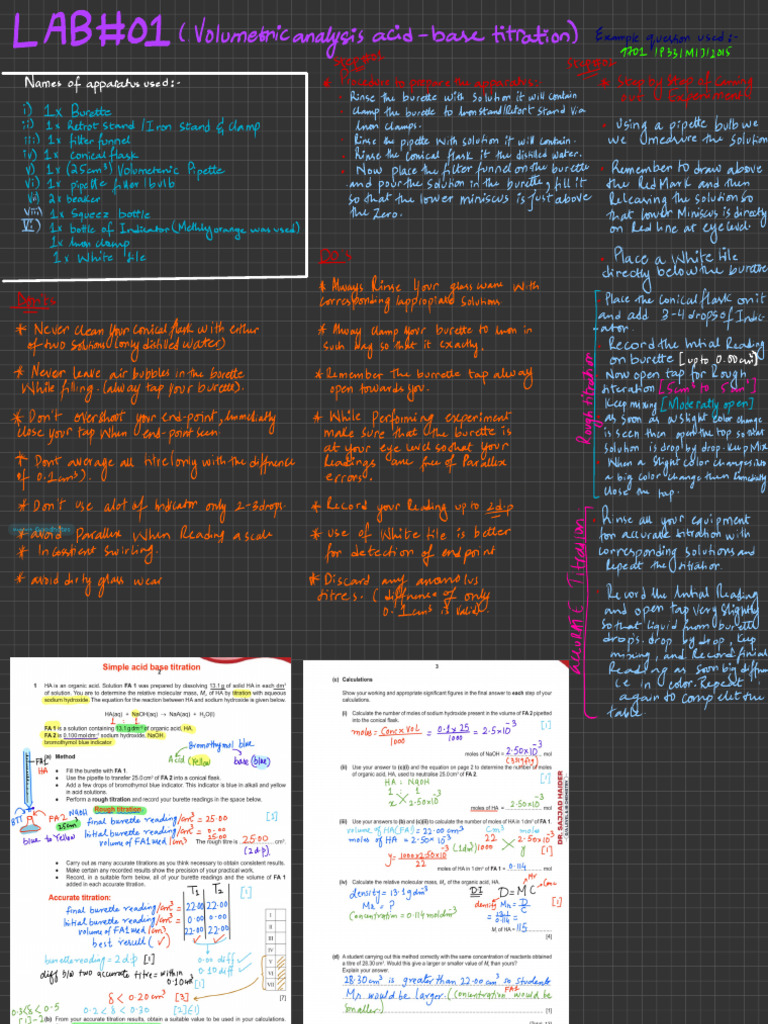 LAB#01 (Volumetric analysis acid-base titration)
Example question used:-
9701/P33/MJ/2015
Names of apparatus used:-
i) 1x Burette
ii) 1x Retrot stand/Iron stand & clamp
iii) 1x filter funnel
iv) 1x conical flask
v) 1x (25cm³) Volumetric Pipette
vi) 1x pipette filter/bulb
vii) 2x beaker
viii) 1x Squeez bottle
1x bottle of Indicator (Methly orange was used)
1x Iron clamp
1x White tile
* Procedure to prepare the apparatus:-
• Rinse the burette with solution it will contain
• clamp the burette to Iron stand/Retort stand via
Iron clamps.
• Rinse the pipette with solution it will contain.
• Rinse the conical flask it the distilled water.
• Now place the filter funnel on the burette
and pour the solution in the burette, fill it
so that the lower miniscus is just above
the Zero.
* Step by Step of Carrying
out Experiment
• Using a pipette bulb we
measure the Solution
• Remember to draw above
the Red Mark and then
Releasing the solution so
that lower Miniscus is directly
on Red line at eye level.
• Place a White tile
directly below the burette
Rough titration
• Place the conical flask on it
and add 3-4 drops of Indic-
ator.
Record the Initial Reading
on burette [up to 0.00cm³]
Now open tap for Rough
titeration
Keep mixing [Moderatly open]
as soon as a slight color change
is seen then open the tap so that
solution is drop by drop. Keep Mix
When a slight color changes into
a big color change then Immedietly
close the tap.
ACCURATE TITRATION
• Rinse all your equipment
for accurate titration with
corresponding solutions and
Repeat the titration.
• Record the Initial Reading
and open tap very slightly
so that liquid from burette
drops drop by drop, Keep
mixing, and Record final
Reading as soon big differen
ce in color. Repeat
again to complete the
table.
Don'ts
* Never clean your conical flask with either
of two solutions (only distilled water)
* Never leave air bubbles in the burette
While filling. (alway tap your burette).
* Don't overshoot your end-point, Immedietly
close your tap when end-point seen
* Dont average all titre (only with the diffrence
of 0.1cm³).
* Don't use alot of Indicator only 2-3 drops.
* avoid Parallux When Reading a scale
* Inconstient swirling.
* avoid dirty glass wear
DO's
* Always Rinse Your glassware with
corresponding (appropiate) solutions
* Alway clamp your burette to Iron in
such way so that it exactly.
* Remember the burette tap always
open towards you.
* While Performing experiment
make sure that the burette is
at your eye level so that your
Readings are free of Parallax
errors.
* Record your Reading up to 2dp
* use of White tile is better
for detection of end point
* Discard any anomolus
titres. (difference of only
0.1cm³ is valid).
Simple acid base titration
2
1 HA is an organic acid. Solution FA 1 was prepared by dissolving 13.1 g of solid HA in each dm³
of solution. You are to determine the relative molecular mass, Mr, of HA by titration with aqueous
sodium hydroxide. The equation for the reaction between HA and sodium hydroxide is given below.
HA(aq) + NaOH(aq) → NaA(aq) + H₂O(l)
1 : 1
FA 1 is a solution containing 13.1 g dm⁻³ of organic acid, HA.
FA 2 is 0.100 mol dm⁻³ sodium hydroxide, NaOH.
bromothymol blue indicator
Bromothymol blue
Acid (Yellow) base (blue)
(a) Method
FA1
HA
• Fill the burette with FA 1.
• Use the pipette to transfer 25.0 cm³ of FA 2 into a conical flask.
• Add a few drops of bromothymol blue indicator. This indicator is blue in alkali and yellow
in acid solutions.
• Perform a rough titration and record your burette readings in the space below.
Rough titration
BTI FA2 NaOH
25cm³
blue to Yellow
final burette reading/cm³ = 25.00 [1]
Initial burette reading/cm³ = 0.00
volume of FA1 used/cm³ = 25.00
The rough titre is 25.00 cm³.
(2 d.p)
• Carry out as many accurate titrations as you think necessary to obtain consistent results.
• Make certain any recorded results show the precision of your practical work.
• Record, in a suitable form below, all of your burette readings and the volume of FA 1
added in each accurate titration.
Accurate titration: T₁ T₂ [1]
final burette reading/cm³ 22.00 22.00
Initial burette reading/cm³ 0.00 0.00
volume of FA1 used/cm³ 22.00 22.00
best result (✓) ✓ ✓
I
II
III
IV
V
VI
VII
burette reading = 2 d.p [1]
0.00 diff ✓
0.10 diff ✓
diff b/w two accurate titre = within
0.10cm³ [1]
δ < 0.20 cm³ [3]
[7]
0.3<δ<0.5 0.2 < δ < 0.30 [2]
(b) From your accurate titration results, obtain a suitable value to be used in your calculations.
3
(c) Calculations
Show your working and appropriate significant figures in the final answer to each step of your
calculations.
(i) Calculate the number of moles of sodium hydroxide present in the volume of FA 2 pipetted
into the conical flask.
moles = Conc x vol / 1000 = 0.1 x 25 / 1000 = 2.5x10⁻³ [1]
moles of NaOH = 2.50x10⁻³ mol
(3 sig fig)
(ii) Use your answer to (c)(i) and the equation on page 2 to determine the number of moles
of organic acid, HA, used to neutralise 25.0 cm³ of FA 2.
HA : NaOH
1 : 1
x 2.50x10⁻³
[1]
moles of HA = 2.50x10⁻³ mol
(iii) Use your answers to (b) and (c)(ii) to calculate the number of moles of HA in 1 dm³ of FA 1.
volume of HA (FA1) = 22.00 cm³
moles of HA = 2.50x10⁻³
cm³ moles
22 2.50x10⁻³
(1dm³) 1000 y
y = 1000 x 2.50x10⁻³ / 22 [1]
moles of HA in 1 dm³ of FA 1 = 0.114 mol
(iv) Calculate the relative molecular mass, Mr, of the organic acid, HA.
density = 13.1 g dm⁻³
Mr = ?
(Concentration = 0.114 mol dm⁻³)
D = MC
density Mr Conc
Mr = D/C
= 13.1/0.114 [1]
Mr of HA = 115
[4]
(d) A student carrying out this method correctly with the same concentration of reactants obtained
a titre of 28.30 cm³. Would this give a larger or smaller value of Mr than yours?
Explain your answer.
28.30 cm³ is greater than 22.00 cm³ so students
Mr would be larger. (Concentration FA1 would be
smaller) [1]
DR. SAJJAD HAIDER